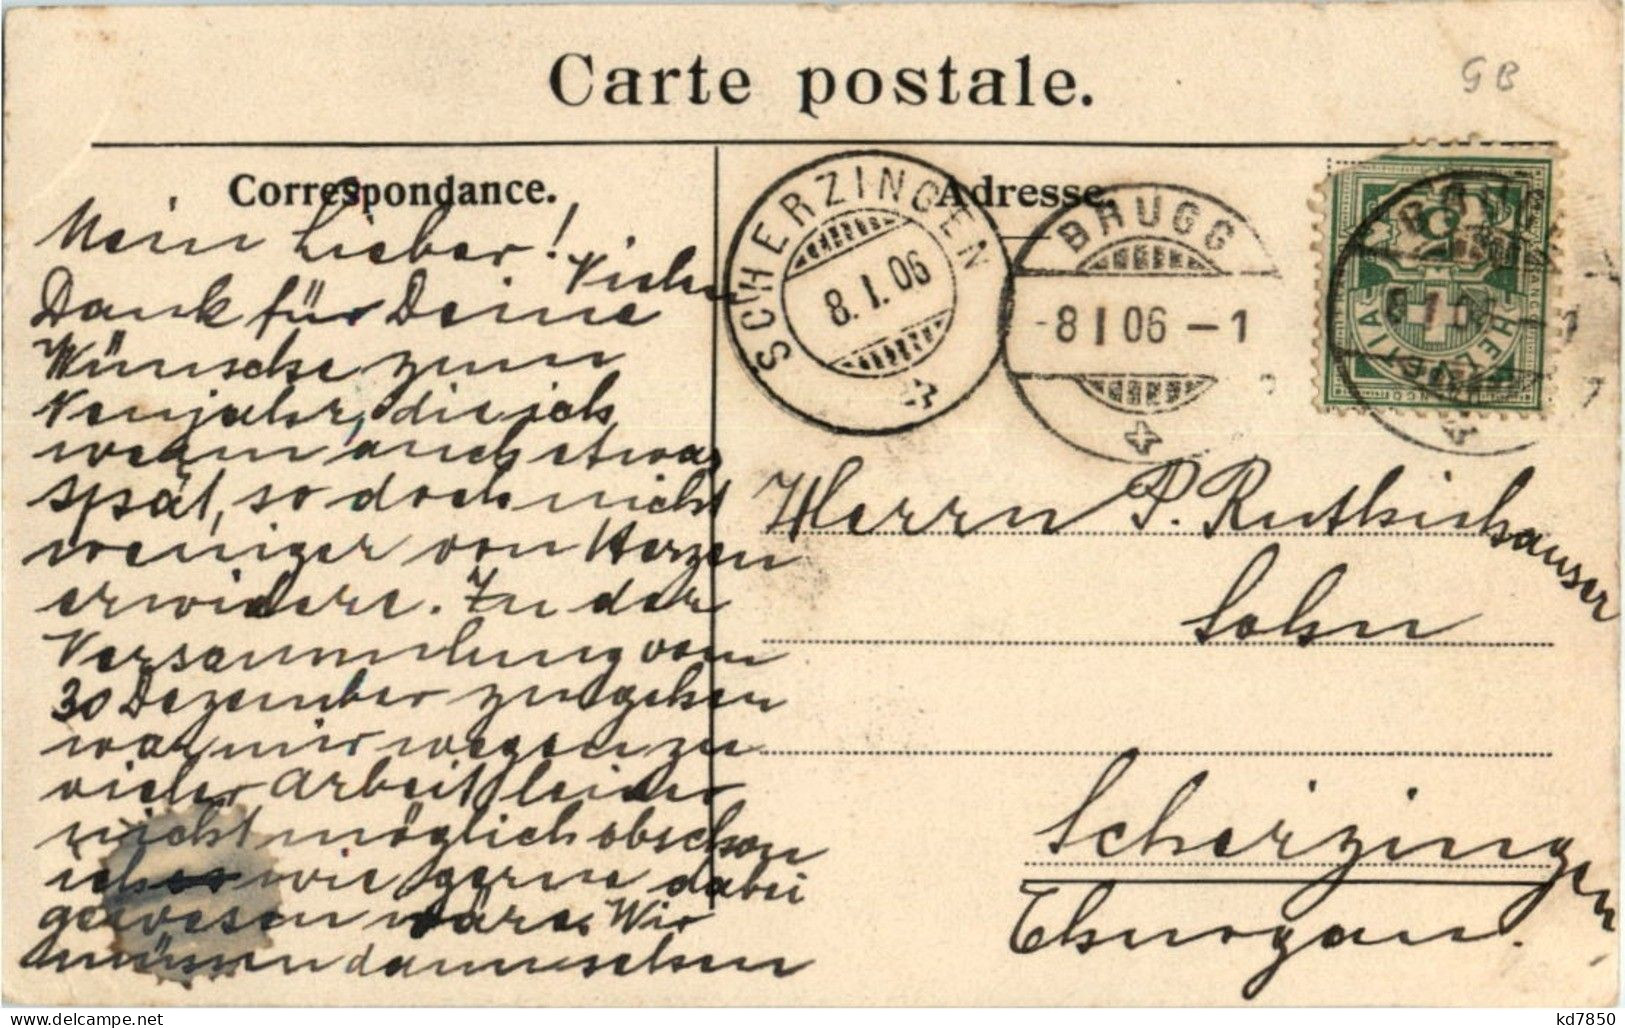 Carte postale.
GB
Correspondance.
Adresse.
SCHERZINGEN
8.I.06
BRUGG
-8 I 06 -1
HELVETIA
Mein Lieber!
Vielen
Dank für Deine
Wünsche zum
Neujahr, die ich
wenn auch etwas
spät, so doch nicht
weniger von Herzen
erwidere. Zu der
Versammlung vom
30 Dezember zu gehen
war mir wegen zu
vieler Arbeit leider
nicht möglich obschon
ich wie gerne dabei
gewesen wäre. Wir
müssen dann sehen
Herrn P. Rutishauser
Sohn
Scherzingen
Thurgau.
kd7850